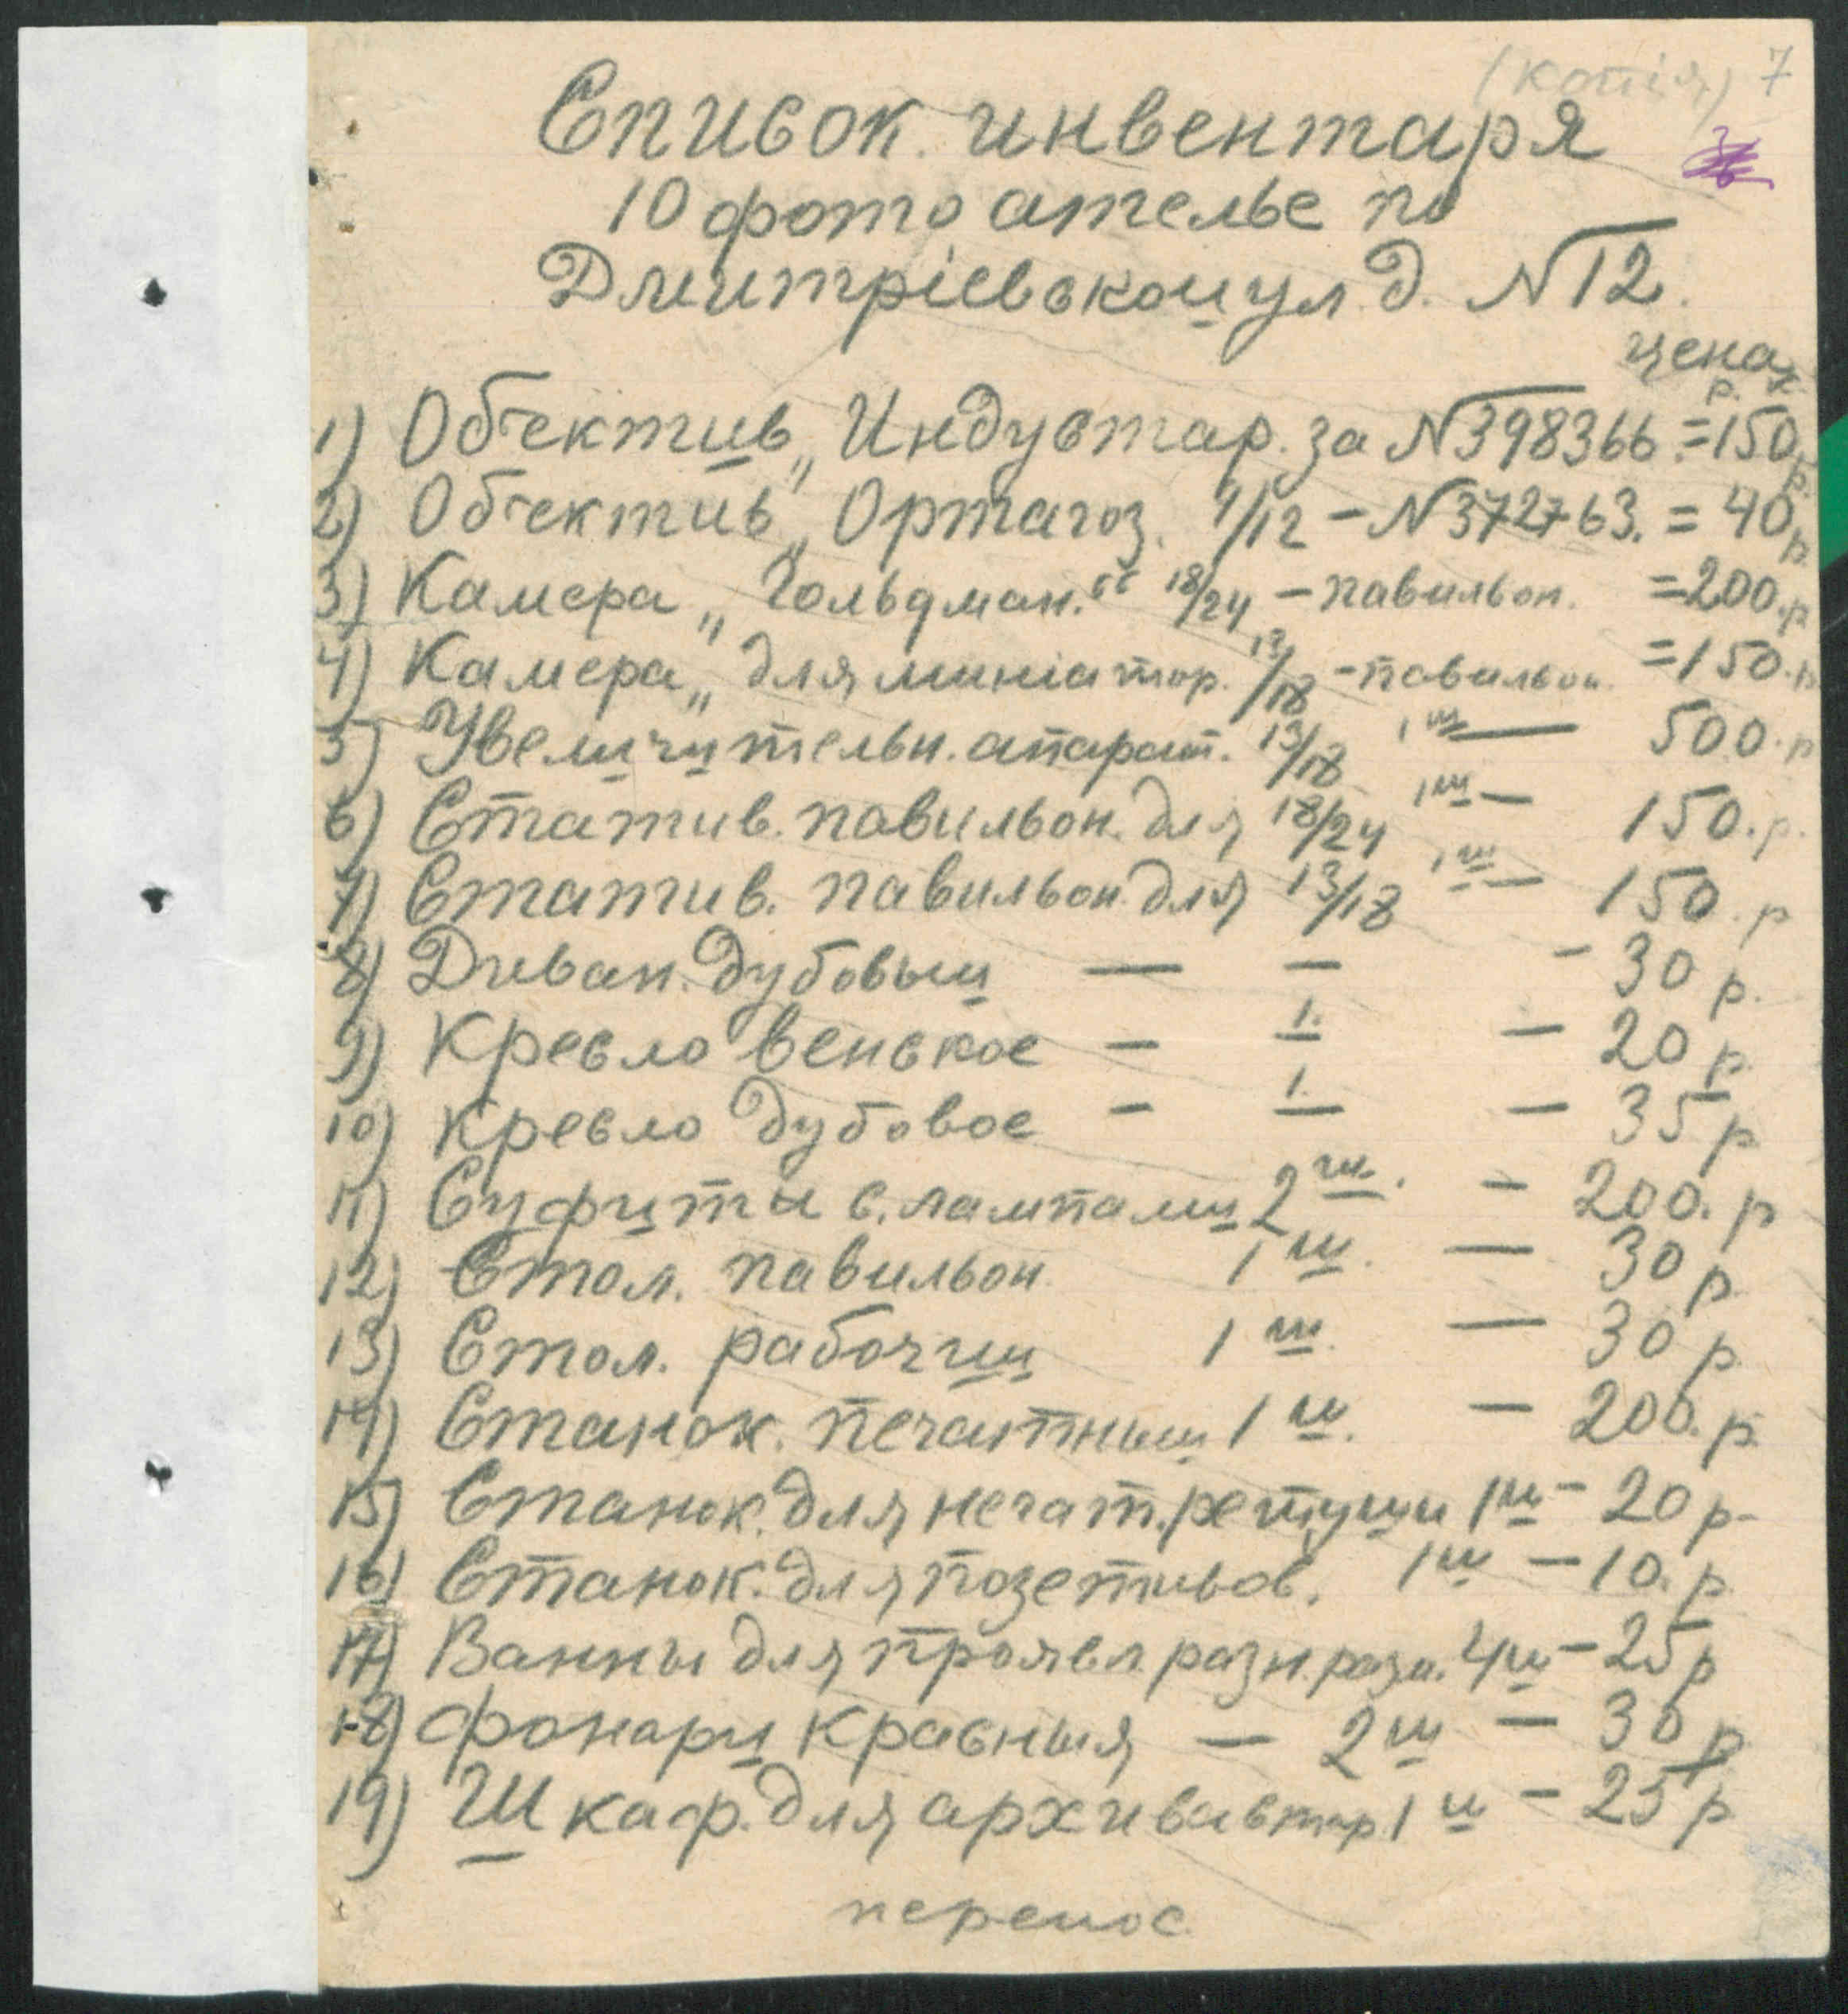 (копія) 7
Список инвентаря
10 фото ателье по
Дмитріевской ул д. №12.
цена
р. к.
1) Объектив „Индустар. за №398366 = 150 р.
2) Объектив „Ортагоз. 9/12 – №372763. = 40 р
3) Камера „Гольдман.“ 18/24 – павильон. = 200. р
4) Камера „для миніатюр. 13/18 – павильон. = 150. р
5) Увеличительн. апарат. 13/18 1 ш — 500. р
6) Статив. павильон. для 18/24 1 ш — 150. р.
7) Статив. павильон. для 13/18 1 ш — 150. р
8) Диван. дубовый — — - 30 р.
9) Кресло венское — 1. — 20 р.
10) Кресло дубовое - 1. — 35 р
11) Суфиты с. лампами 2 ш. – 200. р
12) Стол. павильон. 1 ш. — 30 р.
13) Стол. рабочий 1 ш. — 30 р.
14) Станок. печатный 1 ш. — 200. р.
15) Станок. для негат. ретуши 1 ш – 20 р-
16) Станок. для позетивов. 1 ш – 10. р.
17) Ванны для проявл разн. разм. 4 ш – 25 р
18) Фонари красныя — 2 ш — 30 р
19) Шкаф. для архива стар. 1 ш – 25 р
перенос